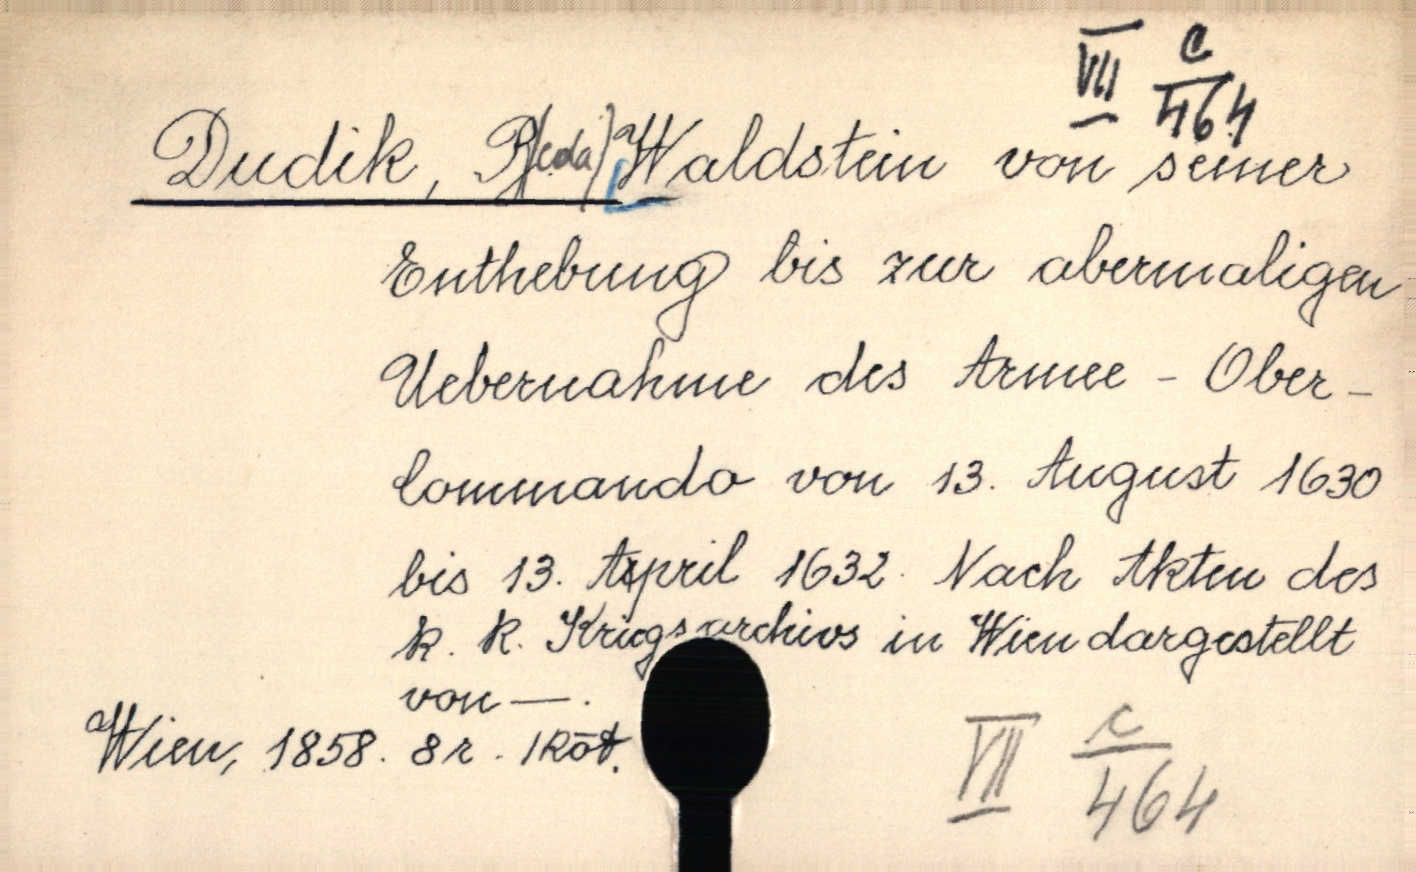 VII c/464
Dudik, B(eda) Waldstein von seiner
Enthebung bis zur abermaligen
Uebernahme des Armee - Ober-
Commando von 13. August 1630
bis 13. April 1632. Nach Akten des
k. k. Kriegsarchivs in Wien dargestellt
von —.
Wien, 1858. 8r. 1 köt.
VII c/464